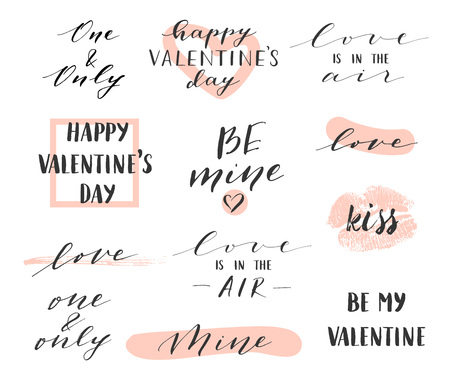 One
&
Only
happy
VALENTINE'S
day
love
IS IN THE
air
HAPPY
VALENTINE'S
DAY
BE
mine
love
kiss
love
love
IS IN THE
-AIR-
one
&
only
Mine
BE MY
VALENTINE